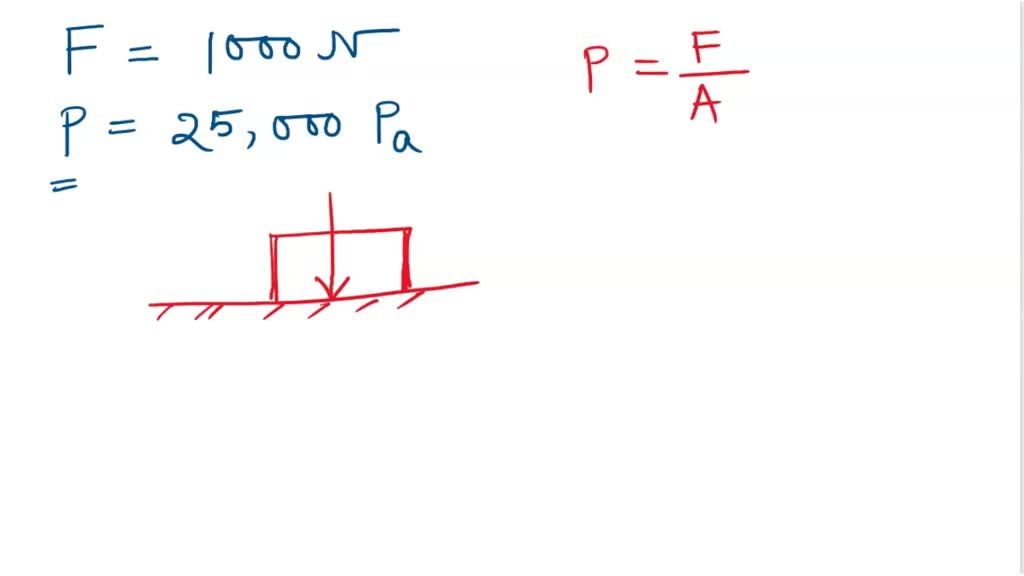 F = 1000 N
P = 25,000 Pa
=
P = F/A